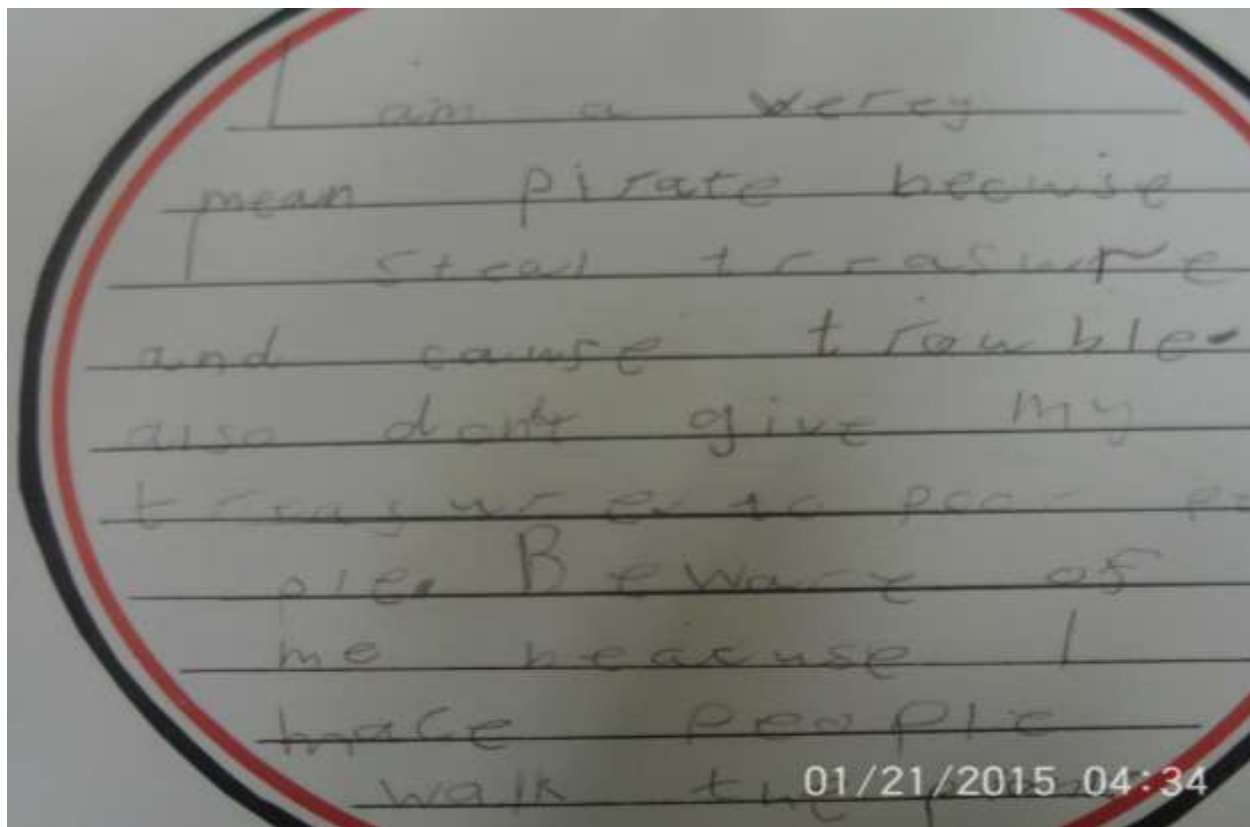 I am a verey
mean pirate becuise
I steal treasure
and cause trouble.
also dont give my
to poor
ple. Beware of
me beacuse I
mace people
walk the
01/21/2015 04:34